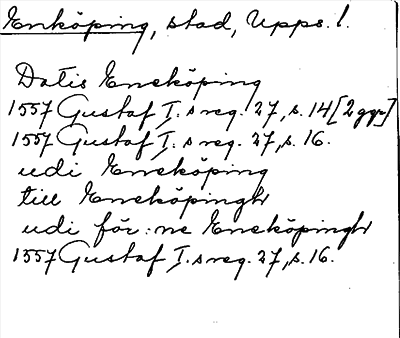 Enköping, stad, Upps. l.
Datis Eneköping
1557 Gustaf I.s reg. 27, s. 14 [2 ggr]
1557 Gustaf I.s reg. 27, s. 16.
udi Eneköping
till Eneköpingh
udi för:ne Eneköpingh
1557 Gustaf I.s reg. 27, s. 16.